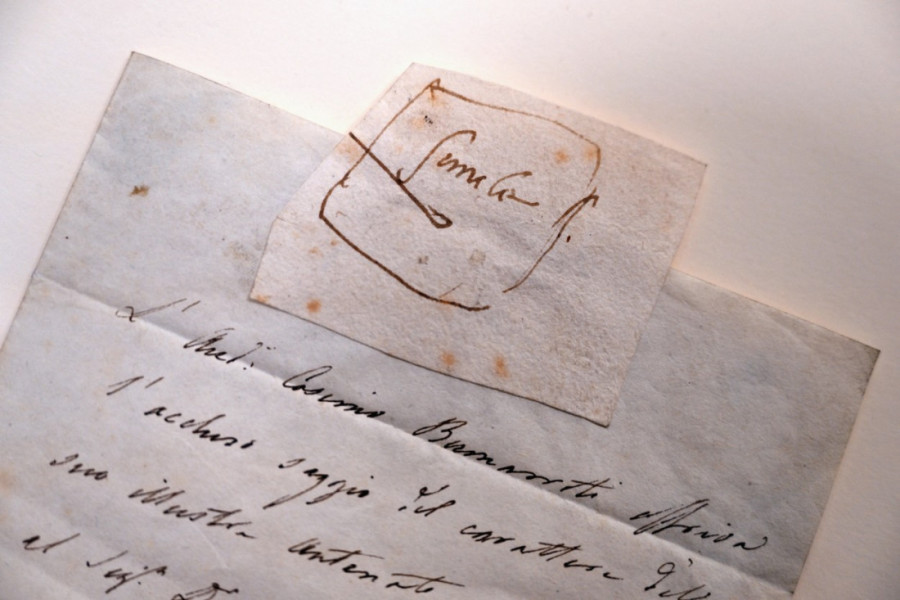 L' Aud.^e Cosimo Buonarroti offriva
l' accluso saggio del carattere dell
suo illustre antenato
al Sig.^r D